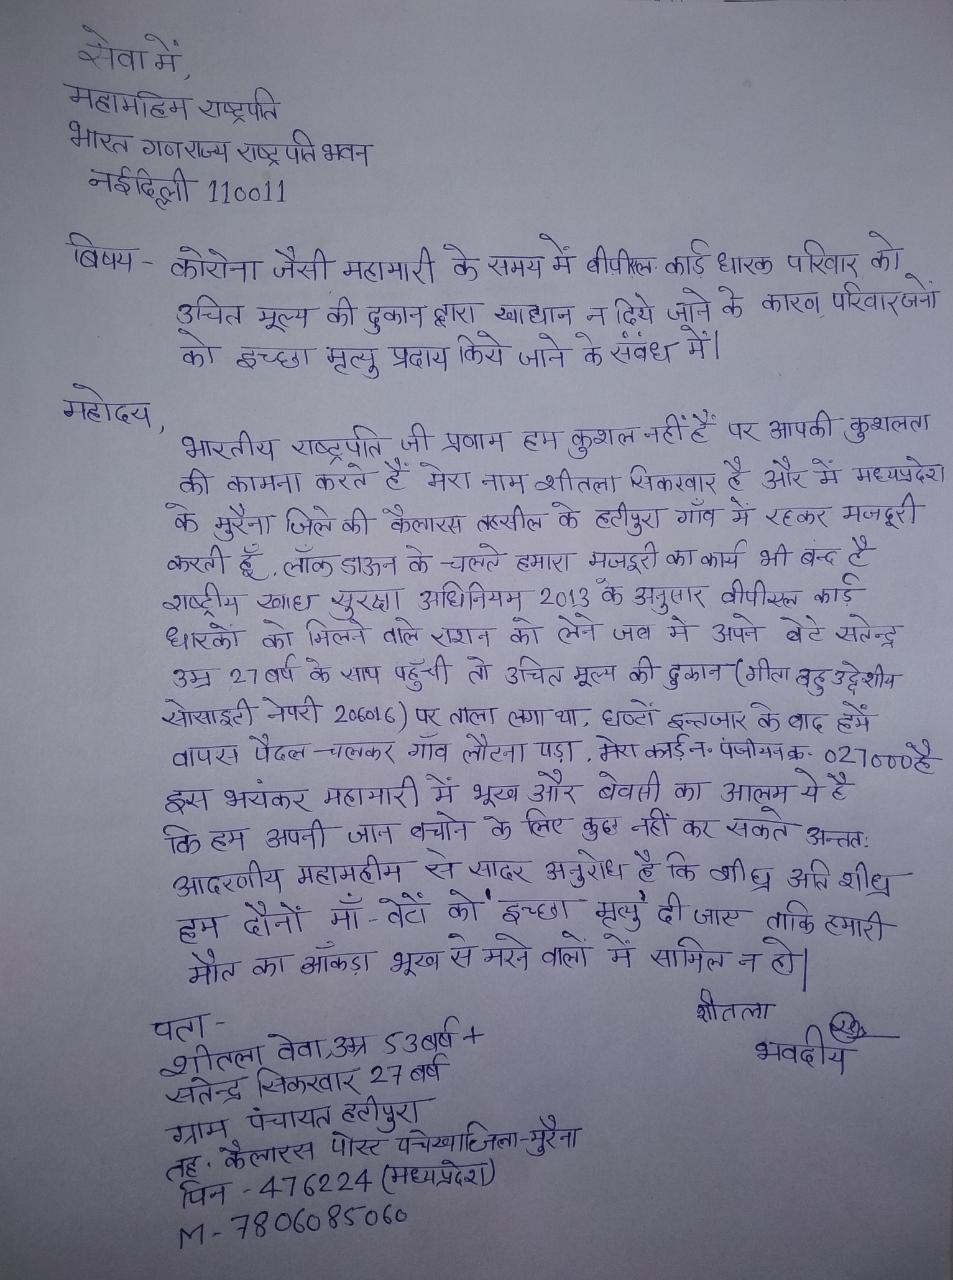 सेवा में,
महामहिम राष्ट्रपति
भारत गणराज्य राष्ट्रपति भवन
नई दिल्ली 110011
बिषय - कोरोना जैसी महामारी के समय में वीपीएल. कार्ड धारक परिवार को
उचित मूल्य की दुकान द्वारा खाद्यान न दिये जाने के कारण परिवारजनों
को इच्छा मृत्यु प्रदाय किये जाने के संबंध में।
महोदय,
भारतीय राष्ट्रपति जी प्रणाम हम कुशल नहीं हैं पर आपकी कुशलता
की कामना करते हैं मेरा नाम शीतला सिकरवार है और में मध्यप्रदेश
के मुरैना जिले की कैलारस तहसील के हटीपुरा गाँव में रहकर मजदूरी
करती हूँ. लॉक डाऊन के चलते हमारा मजदूरी का कार्य भी बन्द है
राष्ट्रीय खाद्य सुरक्षा अधिनियम 2013 के अनुसार वीपीएल कार्ड
धारकों को मिलने वाले राशन को लेने जब में अपने बेटे सतेन्द्र
उम्र 27 वर्ष के साथ पहुँची तो उचित मूल्य की दुकान (गीता बहु उद्देशीय
सोसाइटी नेपरी 206016) पर ताला लगा था, घण्टों इन्तजार के बाद हमें
वापस पैदल चलकर गाँव लौटना पड़ा. मेरा कार्ड न. पंजीयन क्र. 027000 है
इस भयंकर महामारी में भूख और बेवसी का आलम ये है
कि हम अपनी जान बचाने के लिए कुछ नहीं कर सकते अन्तत:
आदरणीय महामहीम से सादर अनुरोध है कि शीघ्र अति शीघ्र
हम दौनों माँ-बेटों को 'इच्छा मृत्यु' दी जाए ताकि हमारी
मौत का आँकड़ा भूख से मरने वालों में सामिल न हो।
शीतला
भवदीय
पता -
शीतला वेवा, उम्र 53 वर्ष +
सतेन्द्र सिकरवार 27 वर्ष
ग्राम पंचायत हटीपुरा
तह. कैलारस पोस्ट पचेखा जिला-मुरैना
पिन - 476224 (मध्यप्रदेश)
M- 7806085060